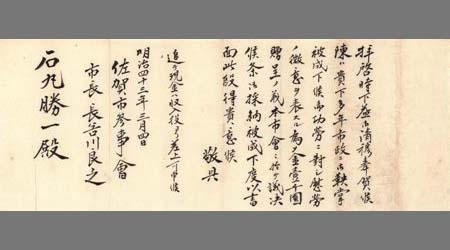 拝啓時下益御清穆奉賀候
陳ハ貴下多年市政ニ御鞅掌
被成下候御功労ニ対シ慰労
ノ微意ヲ表スル為金壹千圓
贈呈ノ義本市會ニ於テ議决
候条御採納被成下度以書
面此段得貴意候
敬具
追テ現金ハ収入役ヨリ差上可申候
明治四十三年三月四日
佐賀市參事會
市長 長谷川良之
石丸勝一殿